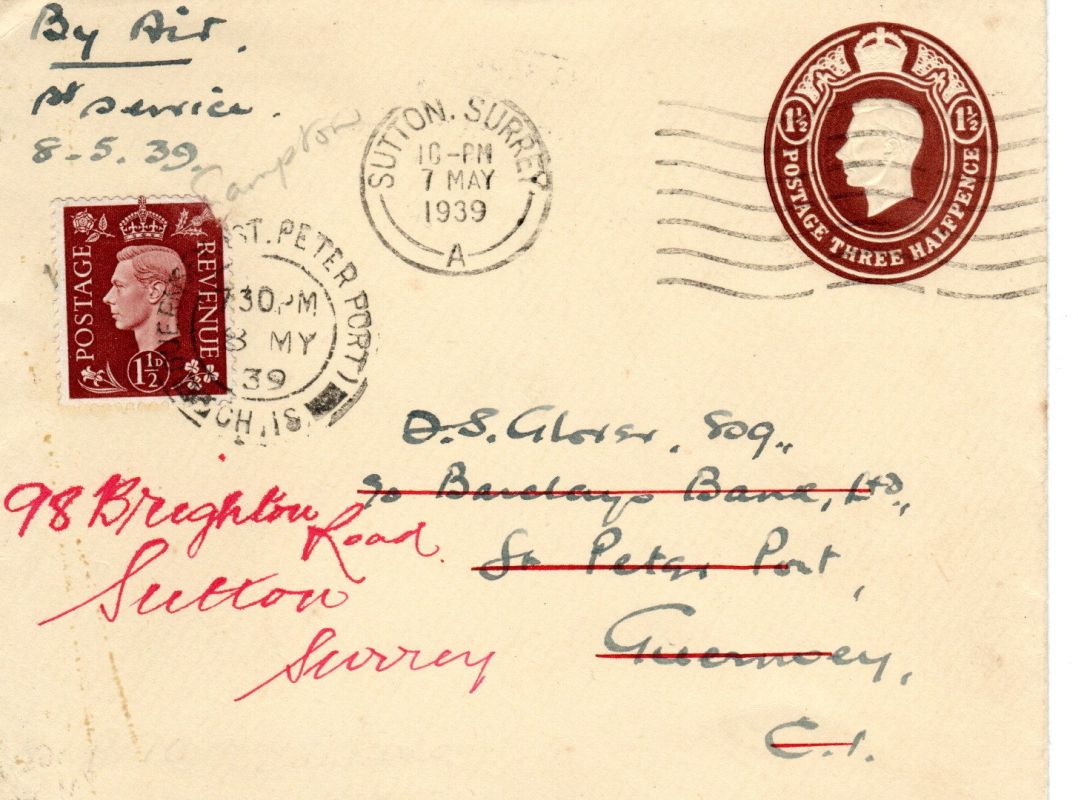 By Air.
1st service.
8-5.39.
SUTTON. SURREY
10-PM
7 MAY
1939
A
1½ 1½
POSTAGE THREE HALFPENCE
POSTAGE REVENUE
1½D
(ST. PETER PORT)
730PM
8 MY
39
CH. IS
D.S. Glover, Esq.,
c/o Barclays Bank, Ltd.,
St Peter Port,
Guernsey,
C.I.
98 Brighton
Road
Sutton
Surrey